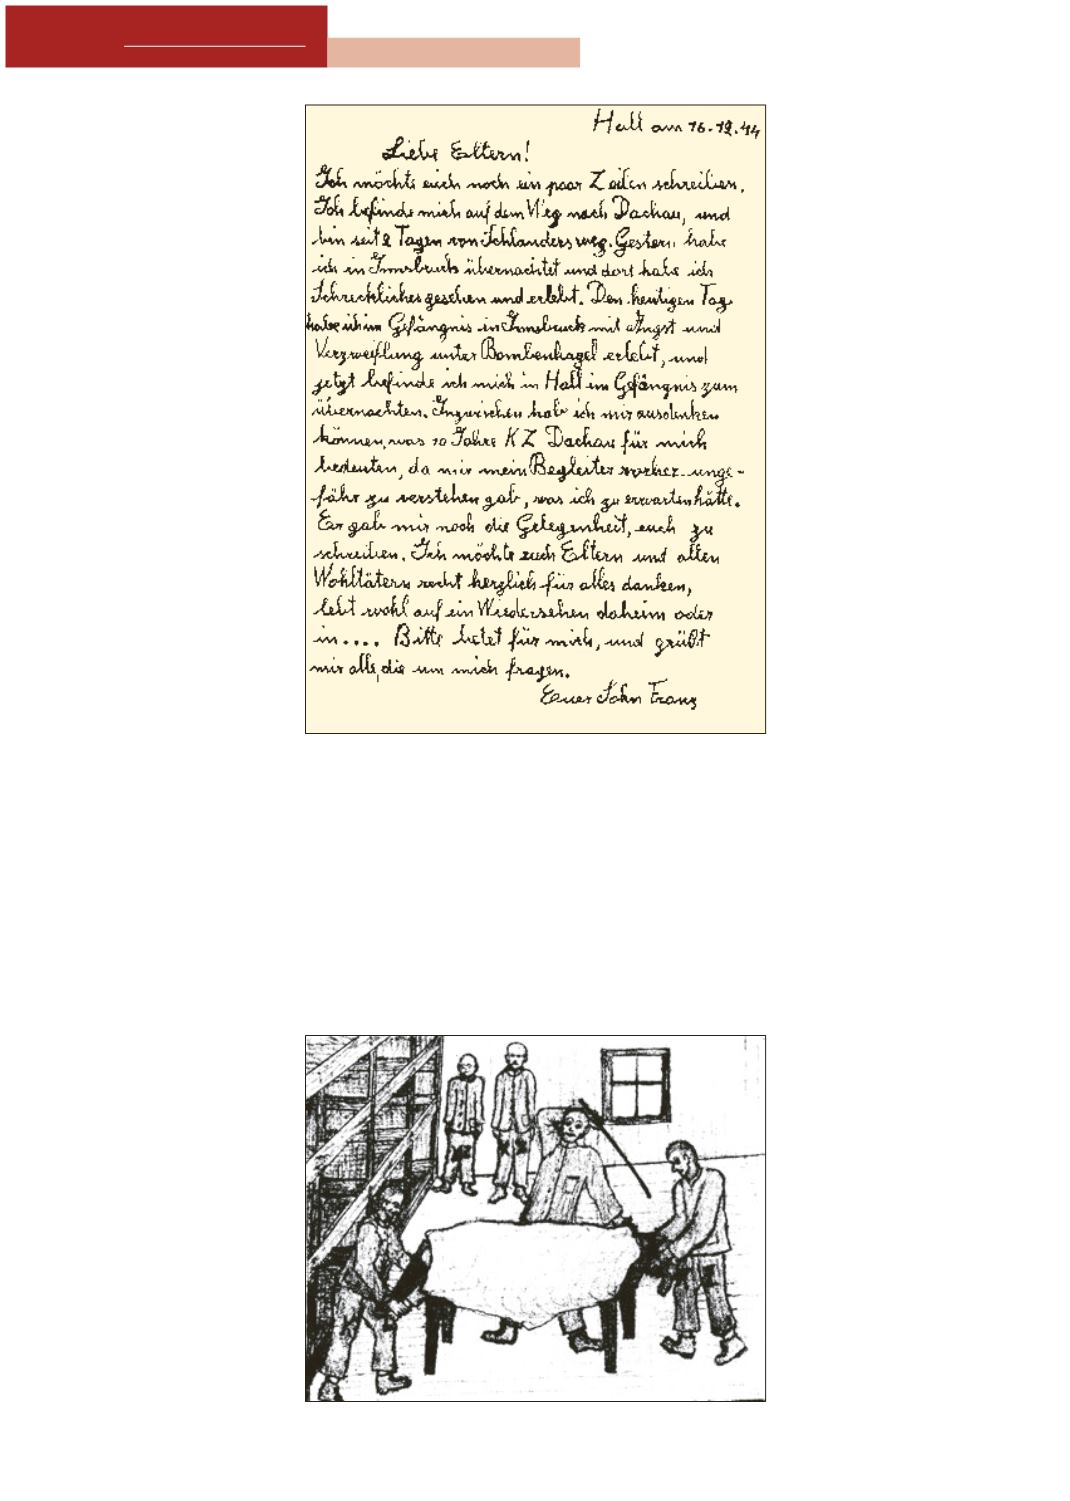 Hall am 16.12.44
Liebe Eltern!
Ich möchte euch noch ein paar Zeilen schreiben.
Ich befinde mich auf dem Weg nach Dachau, und
bin seit 2 Tagen von Schlanders weg. Gestern habe
ich in Innsbruck übernachtet und dort habe ich
Schreckliches gesehen und erlebt. Den heutigen Tag
habe ich im Gefängnis in Innsbruck mit Angst und
Verzweiflung unter Bombenhagel erlebt, und
jetzt befinde ich mich in Hall im Gefängnis zum
übernachten. Inzwischen hab ich mir ausdenken
können, was 10 Jahre KZ Dachau für mich
bedeuten, da mir mein Begleiter vorher unge-
fähr zu verstehen gab, was ich zu erwarten hätte.
Er gab mir noch die Gelegenheit, euch zu
schreiben. Ich möchte euch Eltern und allen
Wohltätern recht herzlich für alles danken,
lebt wohl auf ein Wiedersehen daheim oder
in.... Bitte betet für mich, und grüßt
mir alle, die um mich fragen.
Euer Sohn Franz